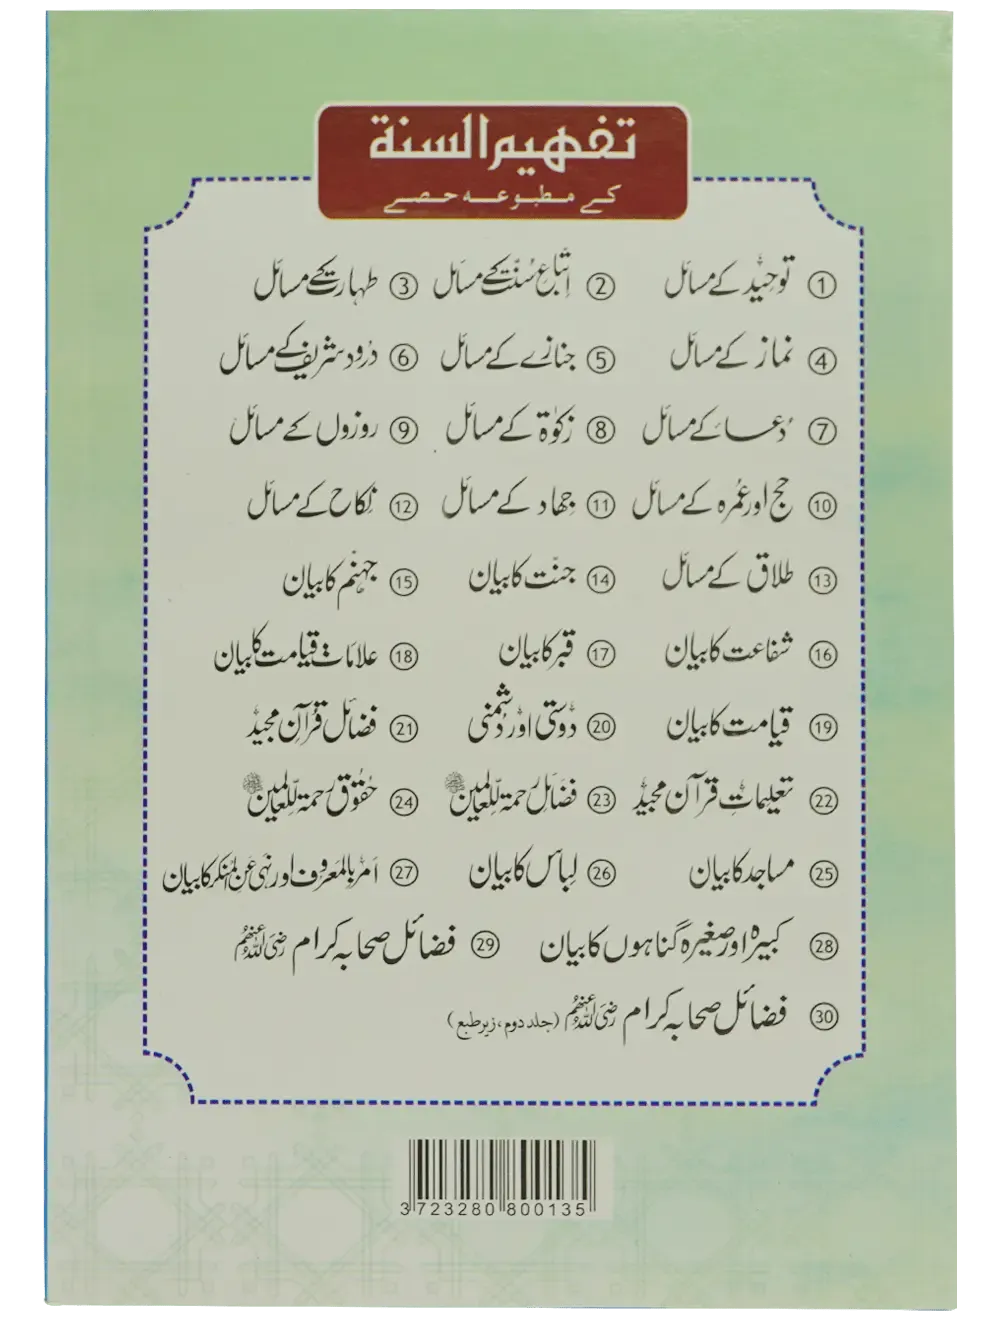 تفہیم السنة
کے مطبوعہ حصے
① توحید کے مسائل ② اتباع سنت کے مسائل ③ طہارت کے مسائل
④ نماز کے مسائل ⑤ جنازے کے مسائل ⑥ درود شریف کے مسائل
⑦ دعا کے مسائل ⑧ زکوٰۃ کے مسائل ⑨ روزوں کے مسائل
⑩ حج اور عمرہ کے مسائل ⑪ جہاد کے مسائل ⑫ نکاح کے مسائل
⑬ طلاق کے مسائل ⑭ جنت کا بیان ⑮ جہنم کا بیان
⑯ شفاعت کا بیان ⑰ قبر کا بیان ⑱ علامات قیامت کا بیان
⑲ قیامت کا بیان ⑳ دوستی اور دشمنی ㉑ فضائل قرآن مجید
㉒ تعلیمات قرآن مجید ㉓ فضائل رحمۃ للعالمین ﷺ ㉔ حقوق رحمۃ للعالمین ﷺ
㉕ مساجد کا بیان ㉖ لباس کا بیان ㉗ امر بالمعروف اور نہی عن المنکر کا بیان
㉘ کبیرہ اور صغیرہ گناہوں کا بیان ㉙ فضائل صحابہ کرام رضی اللہ عنہم
㉚ فضائل صحابہ کرام رضی اللہ عنہم (جلد دوم، زیر طبع)
3723280800135